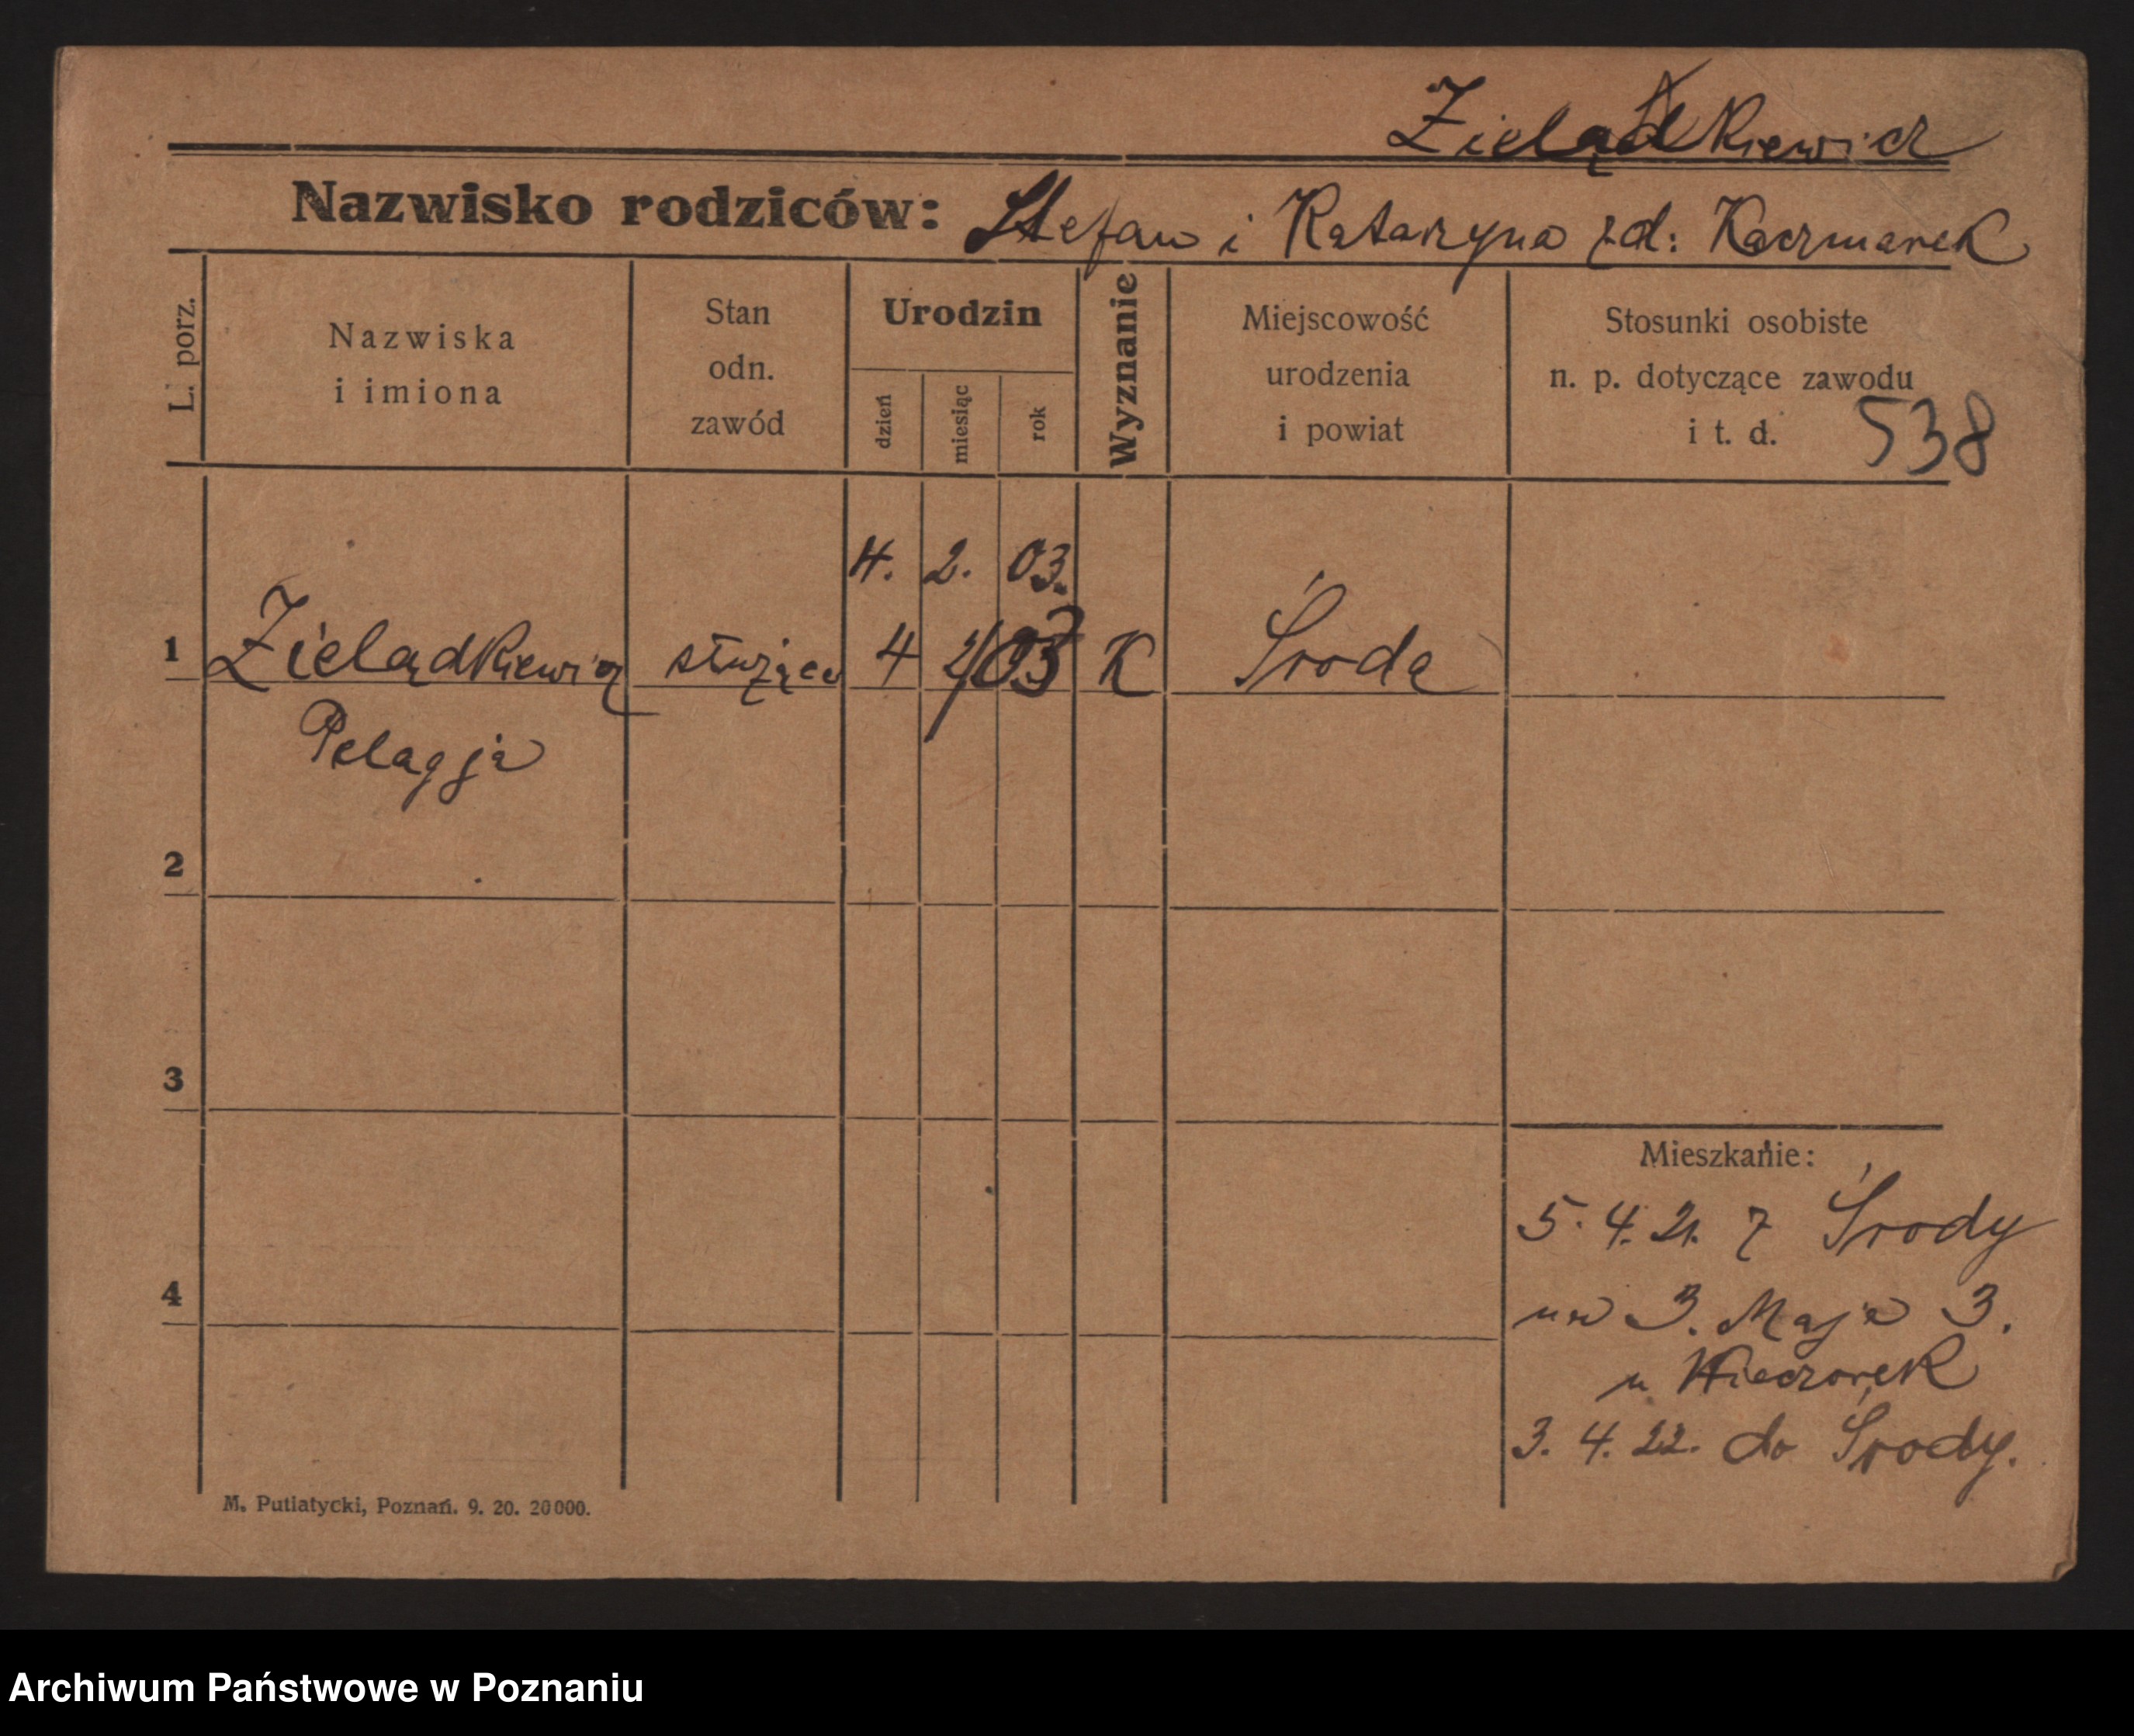 Zielądkiewicz
Nazwisko rodziców: Stefan i Katarzyna zd: Kaczmarek
L. porz.
Nazwiska
i imiona
Stan
odn.
zawód
Urodzin
dzień
miesiąc
rok
Wyznanie
Miejscowość
urodzenia
i powiat
Stosunki osobiste
n. p. dotyczące zawodu
i t. d.
538
4. 2. 03.
1 Zielądkiewicz służąca 4 2/03 K Środa
Pelagja
2
3
Mieszkanie:
5. 4. 21. z Środy
4
na 3. Maja 3.
u Wieczorek
3. 4. 22. do Środy.
M. Putiatycki, Poznań. 9. 20. 20000.
Archiwum Państwowe w Poznaniu